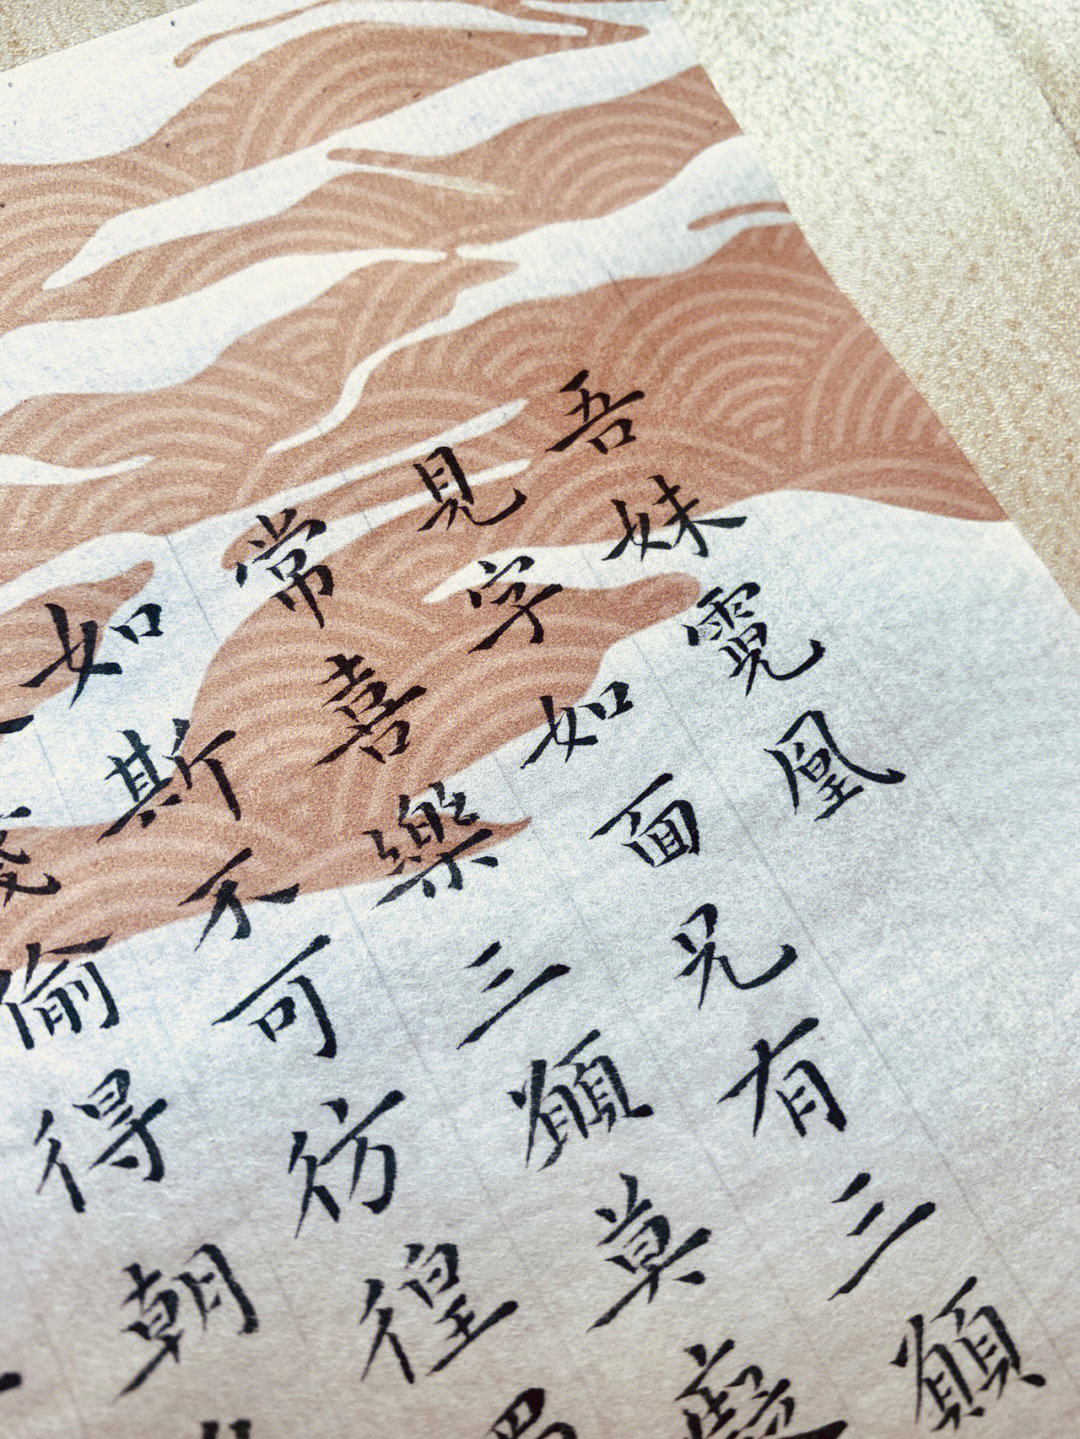 吾妹霓凰
見字如面兄有三願
常喜樂三願莫
如斯不可彷徨
偷得朝